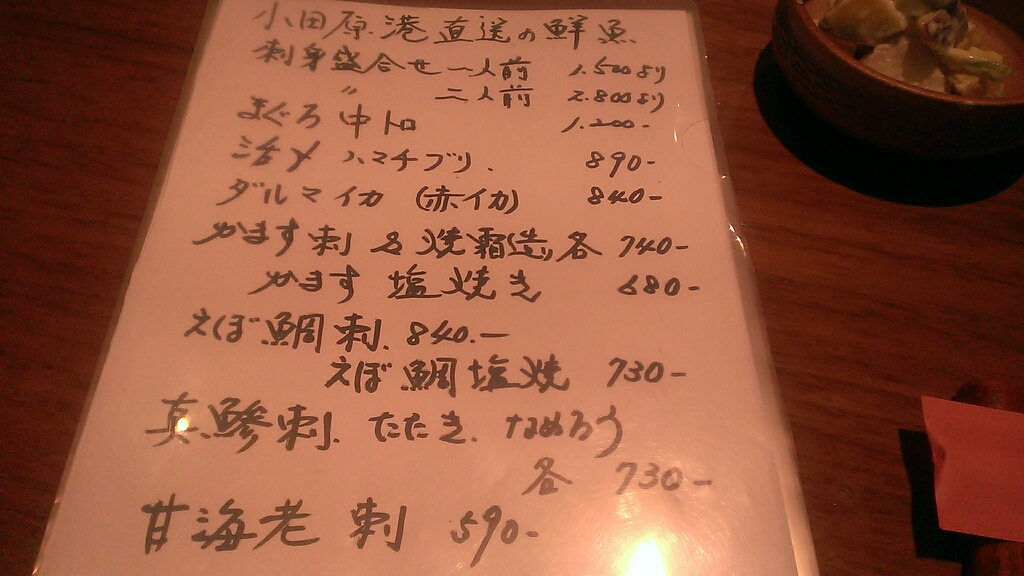 小田原港直送の鮮魚
刺身盛合せ 一人前 1.500より
〃 二人前 2.800より
まぐろ 中トロ 1.200-
活〆 ハマチブリ. 890-
ダルマイカ (赤イカ) 840-
かます刺 & 焼霜造り 各 740-
かます 塩焼き 680-
えぼ鯛刺. 840.-
えぼ鯛塩焼 730-
真鯵刺. たたき. なめろう
各 730-
甘海老刺 590-